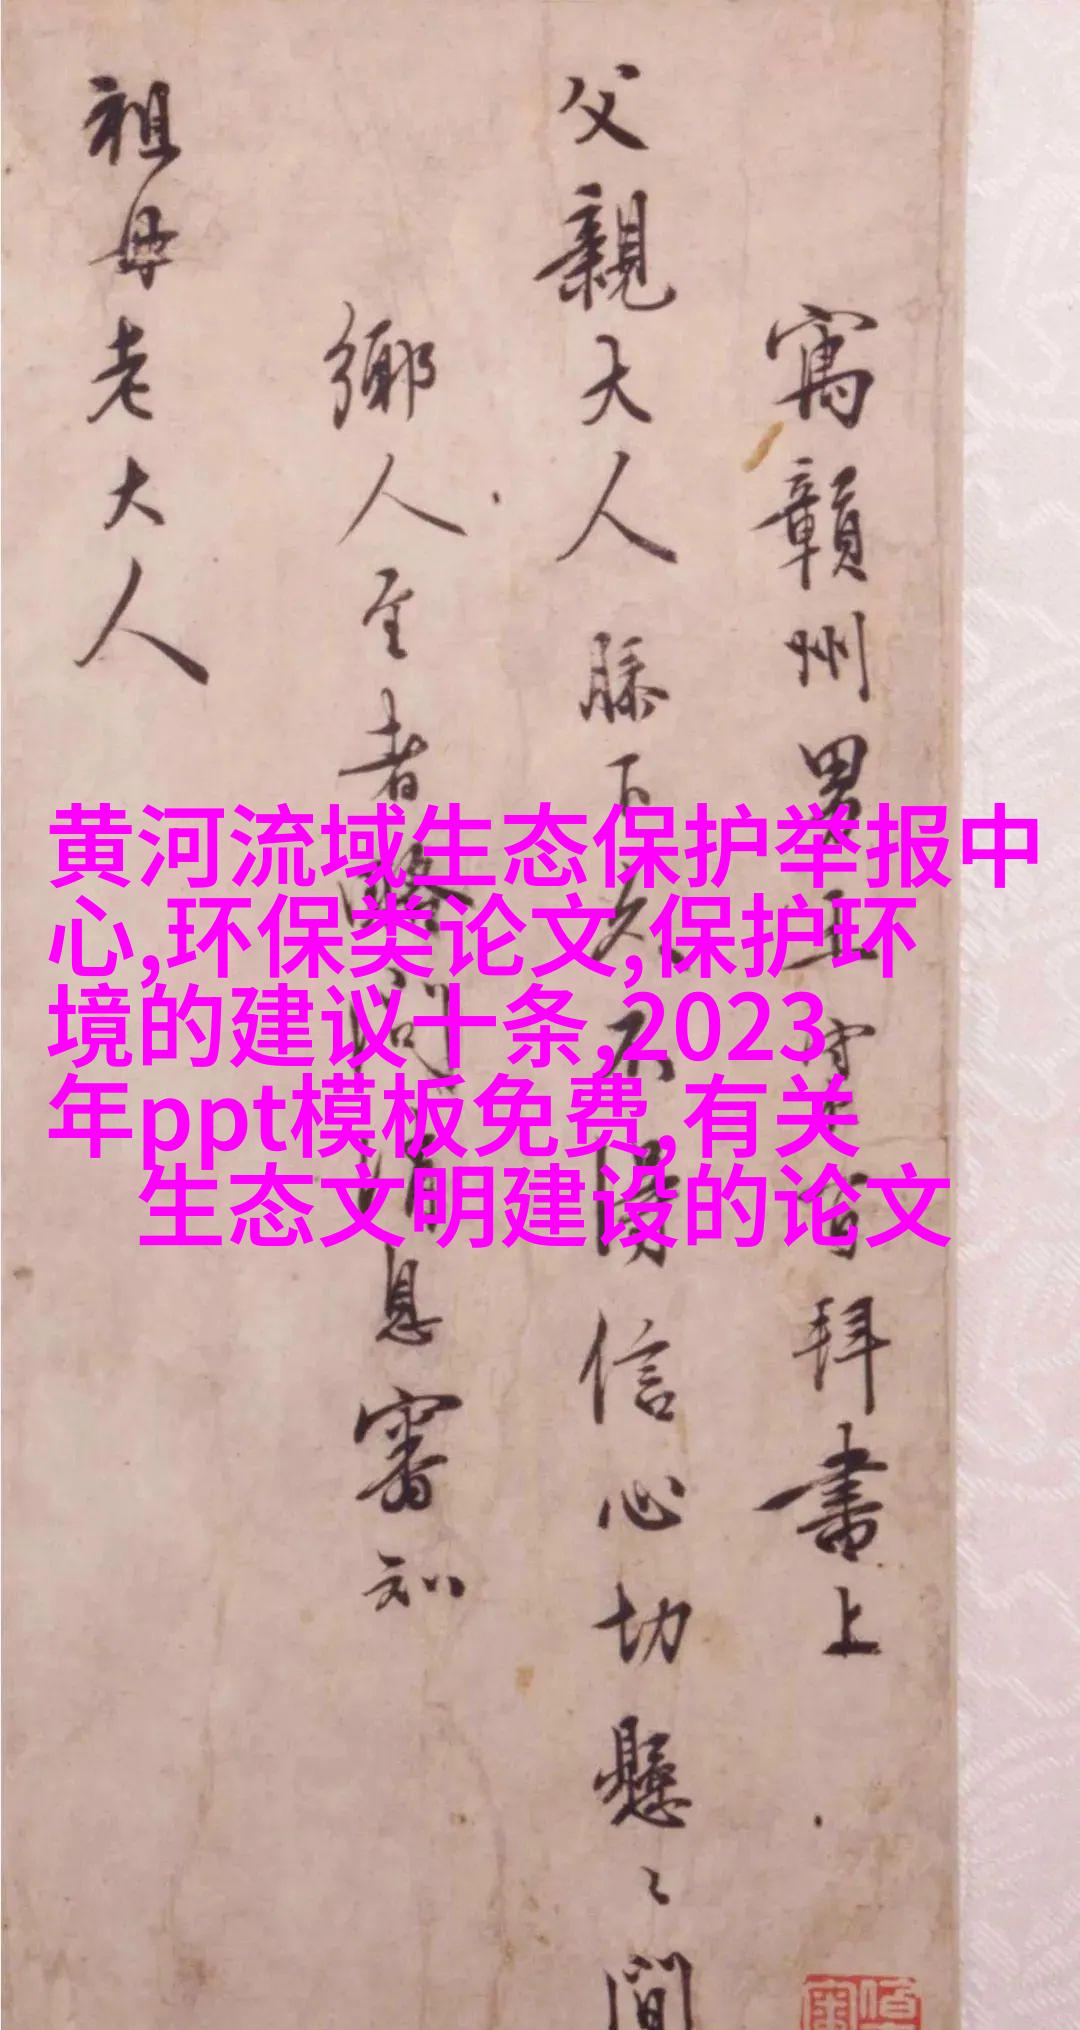 寓贛州男王守仁百拜書上
父親大人膝下久不得信心切懸〻間
鄉人至者略問消息審知
祖母老大人
黄河流域生态保护举报中
心,环保类论文,保护环
境的建议十条,2023
年ppt模板免费,有关
生态文明建设的论文